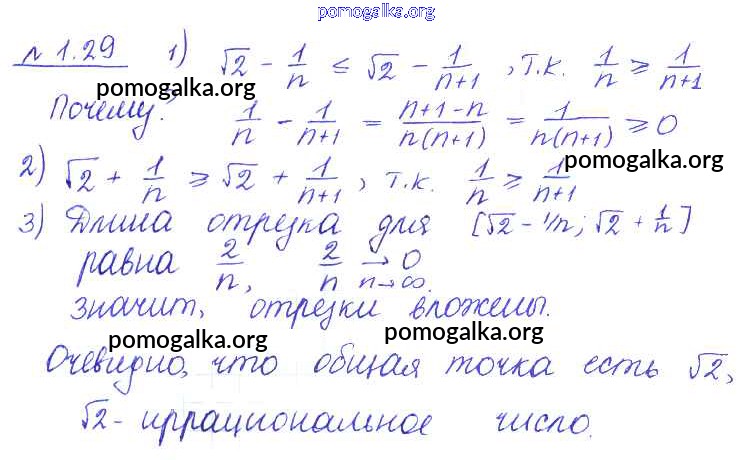 pomogalka.org
№ 1.29 1) √2 - 1/n ≤ √2 - 1/(n+1) , т.к. 1/n ≥ 1/(n+1)
pomogalka.org
Почему? 1/n - 1/(n+1) = (n+1-n)/(n(n+1)) = 1/(n(n+1)) ≥ 0
pomogalka.org
2) √2 + 1/n ≥ √2 + 1/(n+1) , т.к. 1/n ≥ 1/(n+1)
3) Длина отрезка для [√2 - 1/n; √2 + 1/n]
равна 2/n, 2/n → 0 n→∞.
значит, отрезки вложены.
pomogalka.org pomogalka.org
Очевидно, что общая точка есть √2,
√2 - иррациональное число.